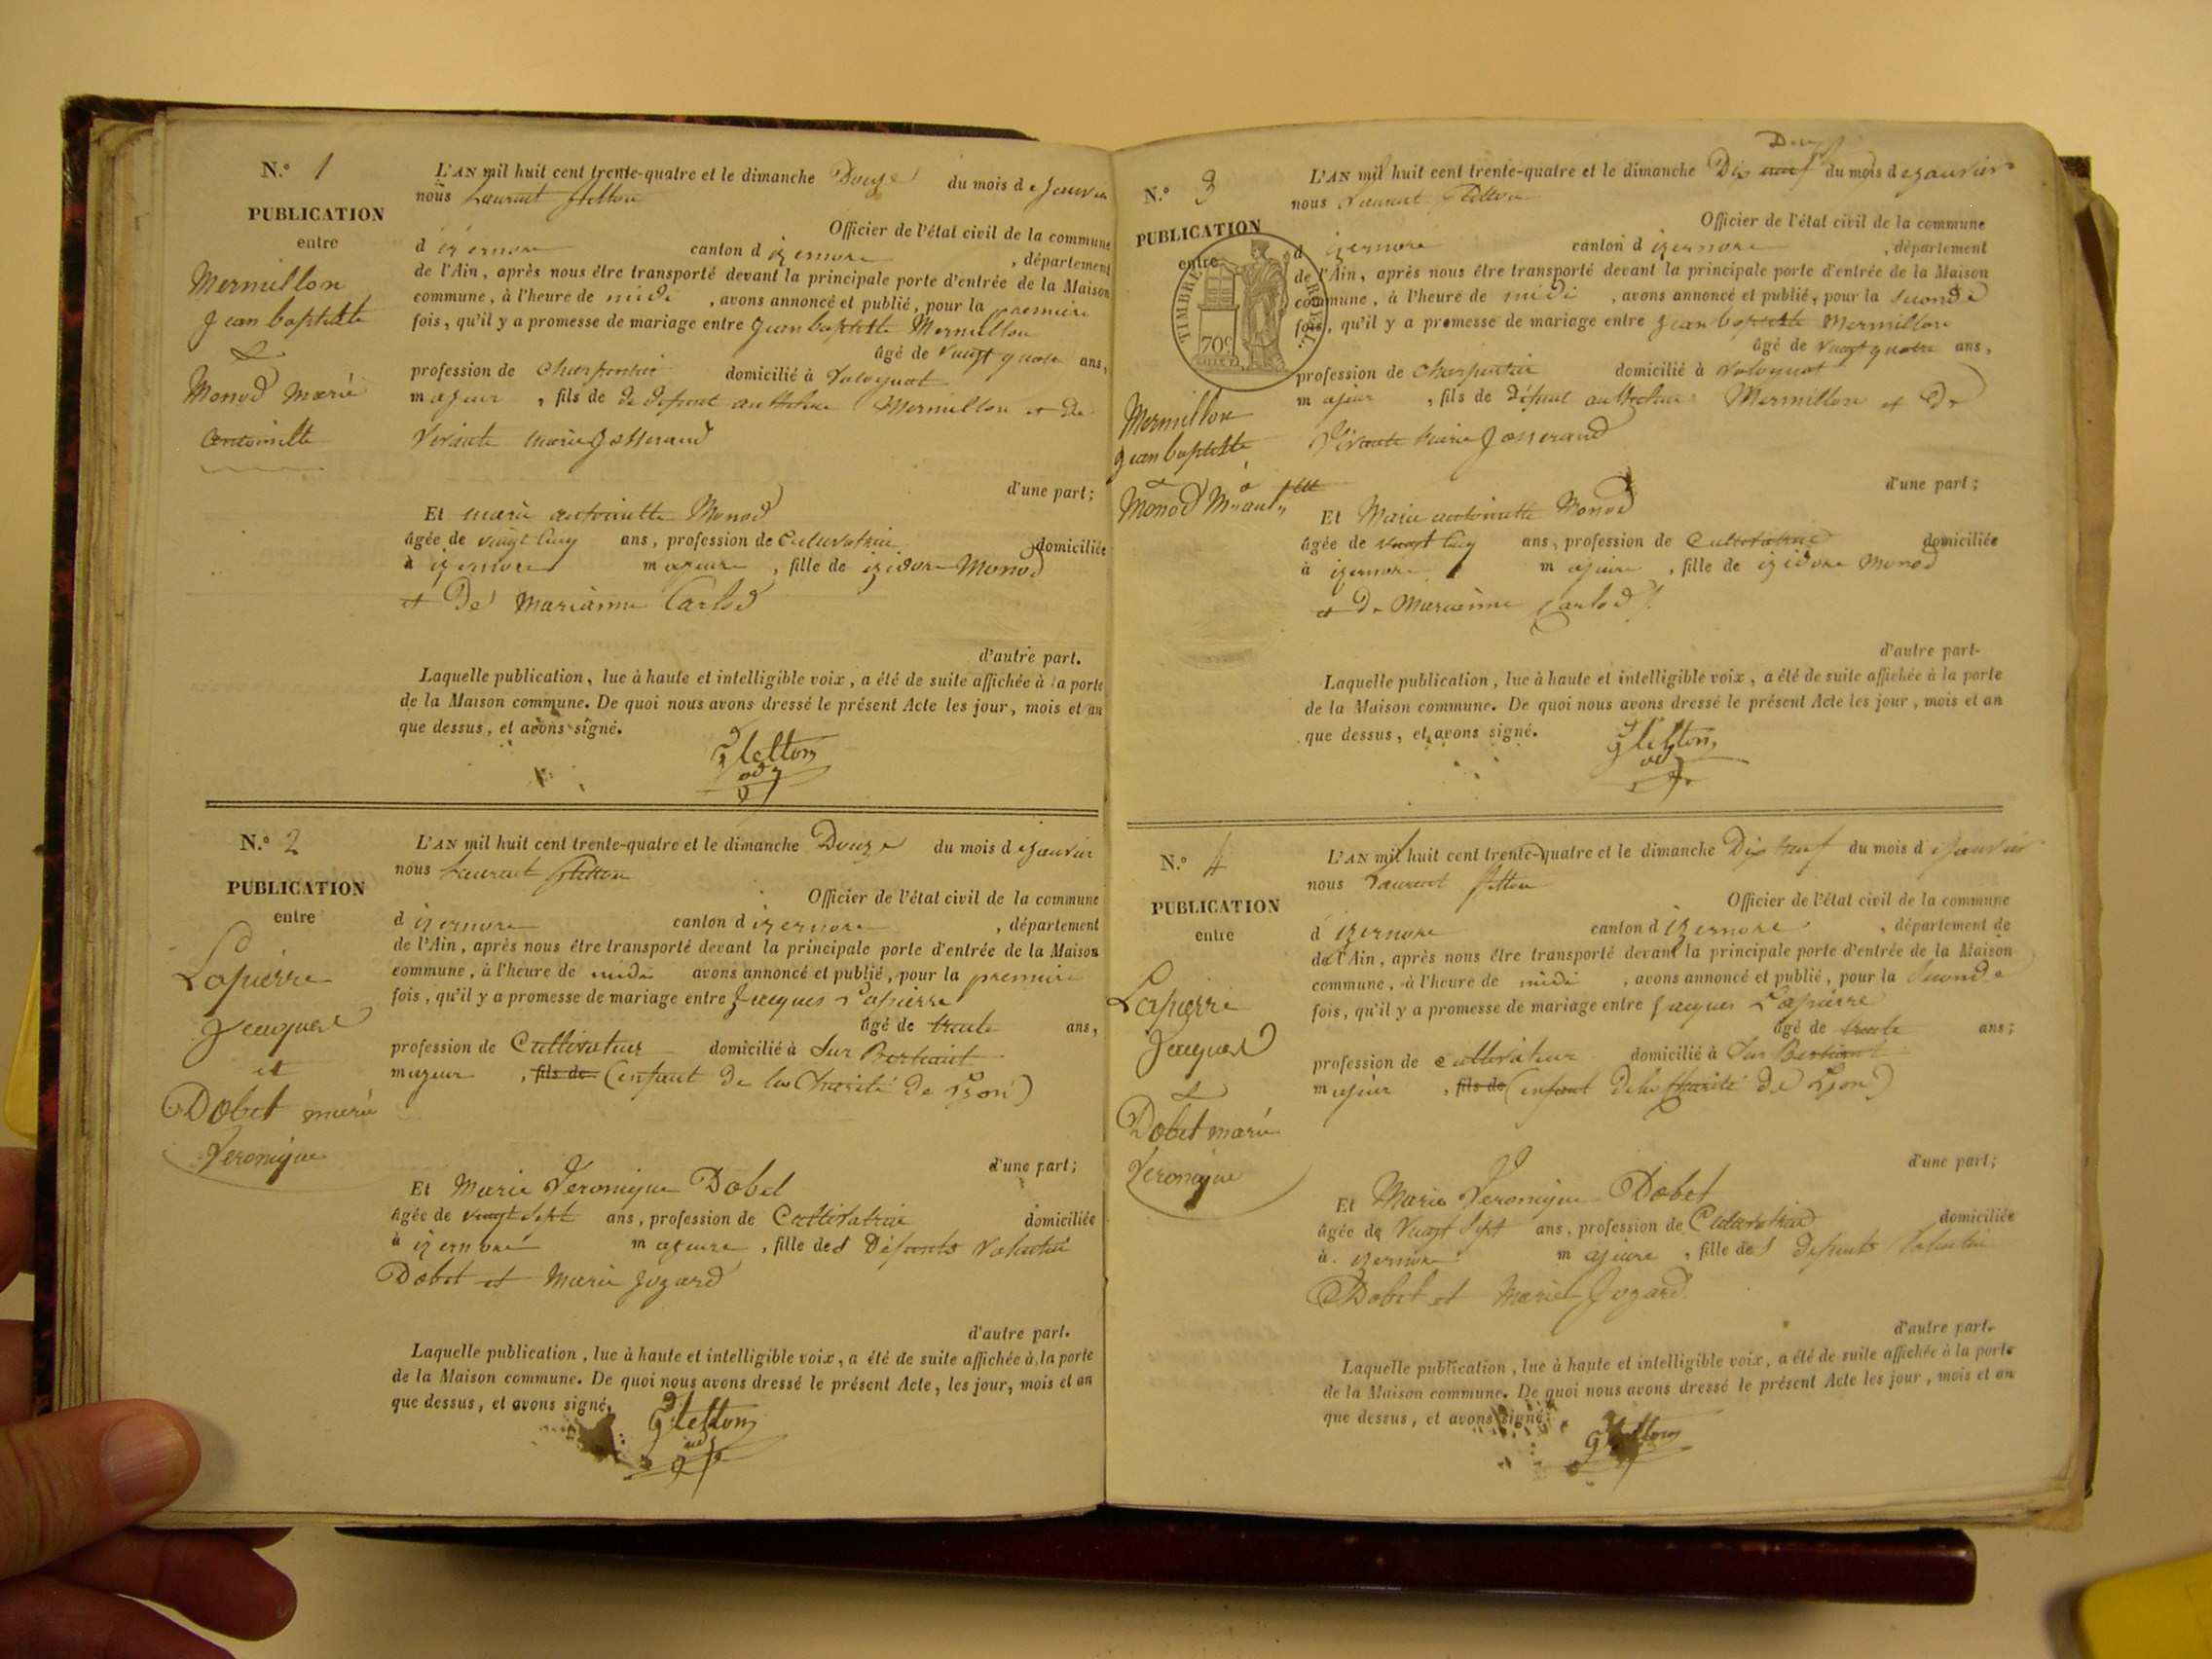 N.° 1
PUBLICATION
entre
Mermillon
Jean baptiste
&
Monod marie
antoinette
L'AN mil huit cent trente-quatre et le dimanche Douze du mois de janvier
nous Laurent
Officier de l'état civil de la commune
d'izernore canton d'izernore, département
de l'Ain, après nous être transporté devant la principale porte d'entrée de la Maison
commune, à l'heure de midi, avons annoncé et publié, pour la premiere
fois, qu'il y a promesse de mariage entre Jean baptiste Mermillon
âgé de vingt quatre ans,
profession de charpentier domicilié à Volognat
majeur, fils de de defunt anthelme Mermillon et de
vivante marie Josserand
d'une part;
Et marie antoinette Monod
âgée de vingt cinq ans, profession de Cultivatrice domiciliée
à izernore majeure, fille de izidore Monod
et De marianne Carlod
d'autre part.
Laquelle publication, lue à haute et intelligible voix, a été de suite affichée à la porte
de la Maison commune. De quoi nous avons dressé le présent Acte les jour, mois et an
que dessus, et avons signé.
N.° 2
PUBLICATION
entre
Lapierre
Jacques
et
Dobet marie
Veronique
L'AN mil huit cent trente-quatre et le dimanche Douze du mois de janvier
nous Laurent
Officier de l'état civil de la commune
d izernore canton d izernore, département
de l'Ain, après nous être transporté devant la principale porte d'entrée de la Maison
commune, à l'heure de midi avons annoncé et publié, pour la premiere
fois, qu'il y a promesse de mariage entre Jacques Lapierre
âgé de trente ans,
profession de Cultivateur domicilié à Sur Bertiant
majeur, fils de (enfant de la Charité de Lyon)
d'une part;
Et Marie Veronique Dobet
âgée de vingt sept ans, profession de Cultivatrice domiciliée
à izernore majeure, fille des Défunts Valentin
Dobet et Marie Jozard
d'autre part.
Laquelle publication, lue à haute et intelligible voix, a été de suite affichée à la porte
de la Maison commune. De quoi nous avons dressé le présent Acte, les jour, mois et an
que dessus, et avons signé.
N.° 3
PUBLICATION
entre
TIMBRE ROYAL.
70c
Mermillon
Jean baptiste
&
Monod
L'AN mil huit cent trente-quatre et le dimanche Dix neuf du mois de janvier
nous Laurent
Officier de l'état civil de la commune
d izernore canton d izernore, département
de l'Ain, après nous être transporté devant la principale porte d'entrée de la Maison
commune, à l'heure de midi, avons annoncé et publié, pour la seconde
fois, qu'il y a promesse de mariage entre Jean baptiste Mermillon
âgé de vingt quatre ans,
profession de charpentier domicilié à Volognat
majeur, fils de défunt anthelme Mermillon et De
Vivante Marie Josserand
d'une part;
Et Marie antoinette Monod
âgée de vingt cinq ans, profession de Cultivatrice domiciliée
à izernore majeure, fille de izidore Monod
et De Marianne Carlod
d'autre part.
Laquelle publication, lue à haute et intelligible voix, a été de suite affichée à la porte
de la Maison commune. De quoi nous avons dressé le présent Acte les jour, mois et an
que dessus, et avons signé.
N.° 4
PUBLICATION
entre
Lapierre
Jacques
&
Dobet marie
Veronique
L'AN mil huit cent trente-quatre et le dimanche Dix neuf du mois d janvier
nous Laurent
Officier de l'état civil de la commune
d izernore canton d izernore, département de
de l'Ain, après nous être transporté devant la principale porte d'entrée de la Maison
commune, à l'heure de midi, avons annoncé et publié, pour la seconde
fois, qu'il y a promesse de mariage entre Jacques Lapierre
âgé de trente ans;
profession de cultivateur domicilié à Sur Bertiant
majeur, fils de (enfant de la Charité de Lyon)
d'une part;
Et Marie Veronique Dobet
âgée de Vingt Sept ans, profession de Cultivatrice domiciliée
à izernore majeure, fille des Defunts Valentin
Dobet et Marie Jozard
d'autre part.
Laquelle publication, lue à haute et intelligible voix, a été de suite affichée à la porte
de la Maison commune. De quoi nous avons dressé le présent Acte les jour, mois et an
que dessus, et avons signé.